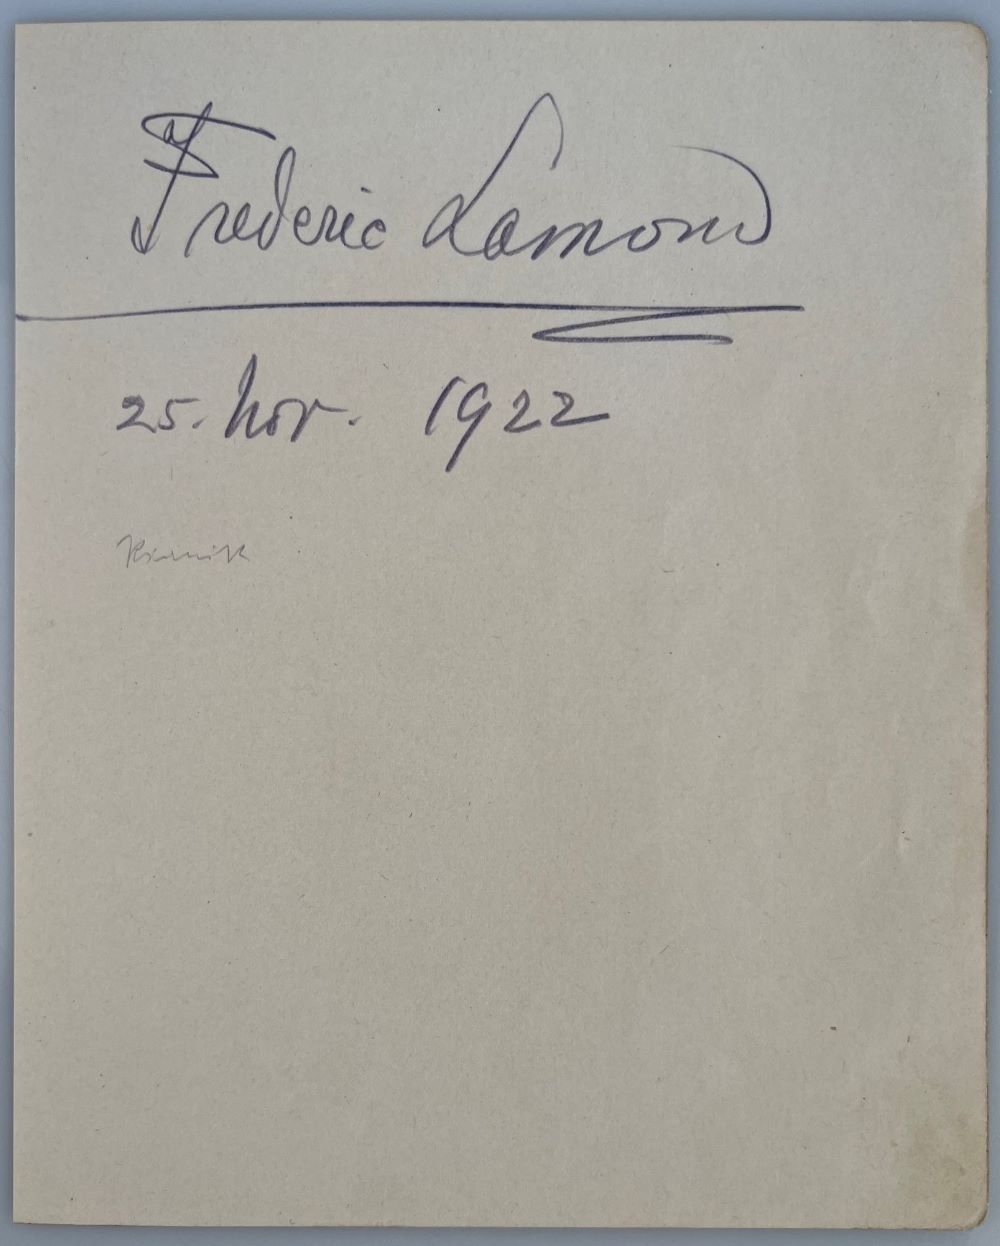 Frederic Lamond
25. Nov. 1922